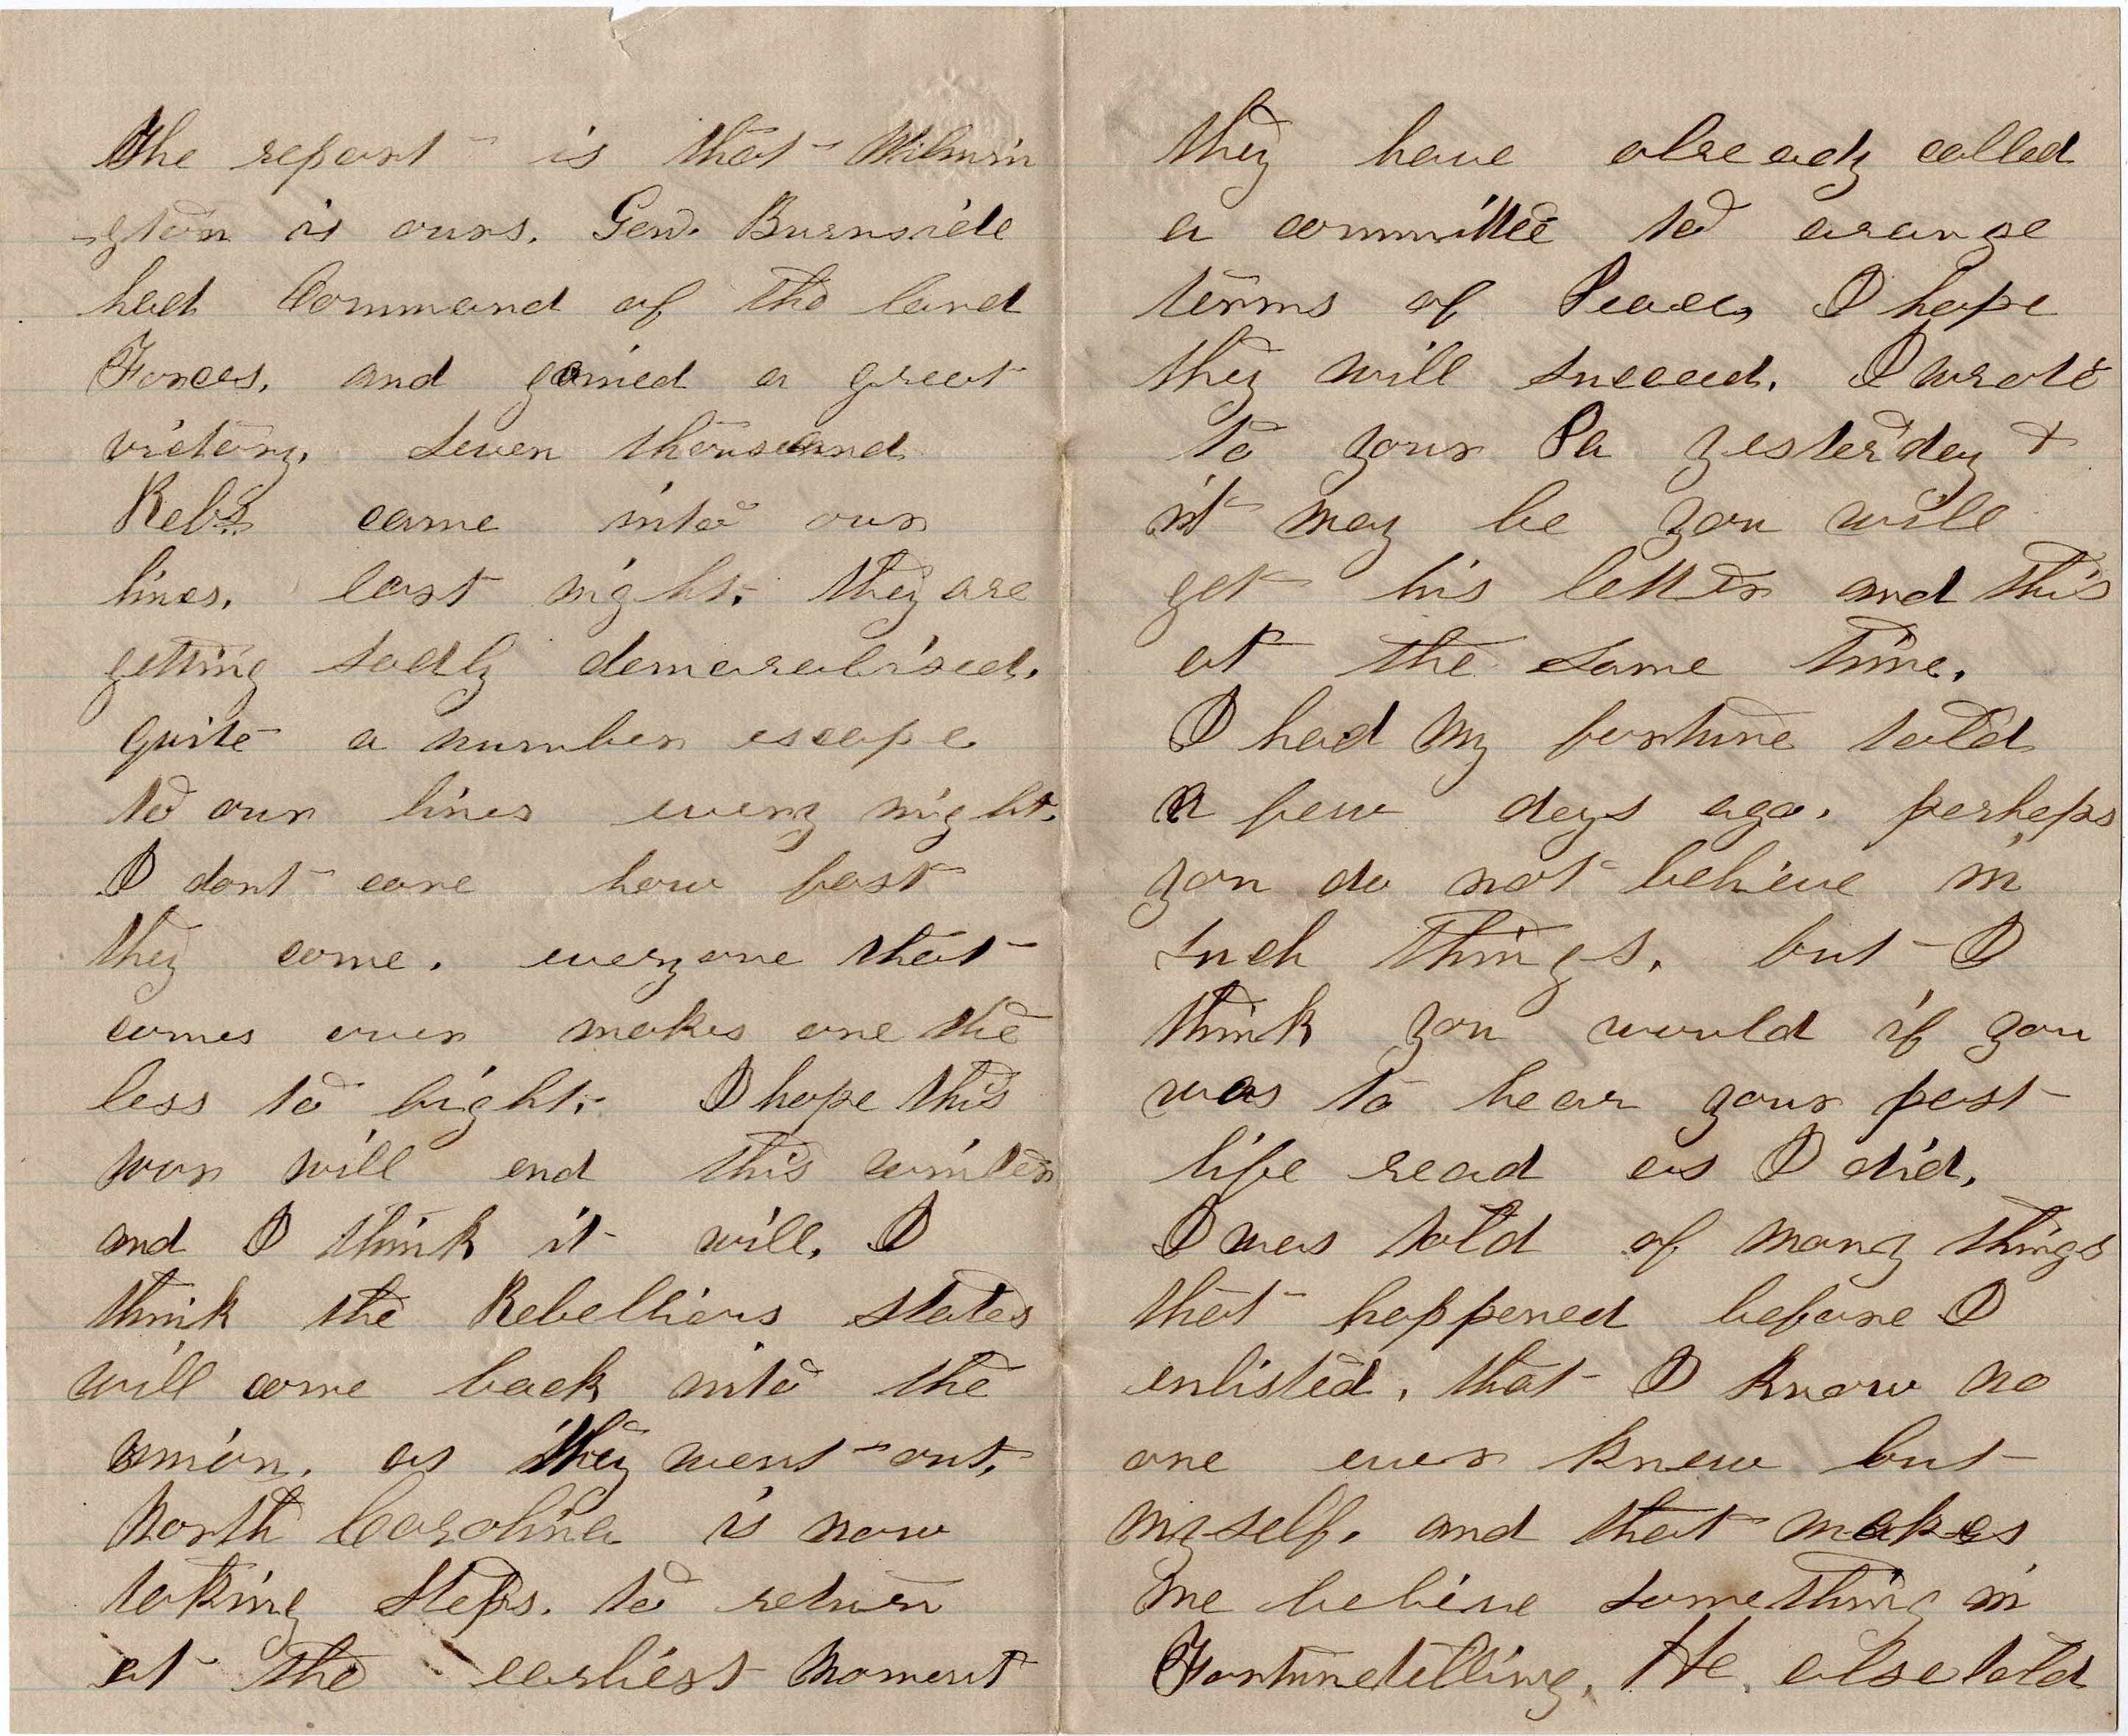 The report is that Wilmin
-gton is ours. Genl. Burnside
had Command of the land
Forces, and gained a great
victory. seven thousand
Rebs came into our
lines, last night. they are
getting sadly demoralised.
quite a number escape
to our lines every night.
I dont care how fast
they come. everyone that
comes over makes one the
less to fight. I hope this
war will end this winter
and I think it will. I
think the Rebellious states
will come back into the
union. as they went out.
North Carolina is now
taking Steps. to return
at the earliest moment
they have already called
a committee to arange
terms of Peace, I hope
they will succeed. I wrote
to your Pa yesterday &
it may be you will
get his letter and this
at the same time.
I had my fortune told
a few days ago. perhaps
you do not believe in
such things. but I
think you would if you
was to hear your past
life read as I did.
I was told of many things
that happened before I
enlisted, that I know no
one ever knew but
myself. and that makes
me believe something in
Fortunetelling. He also told